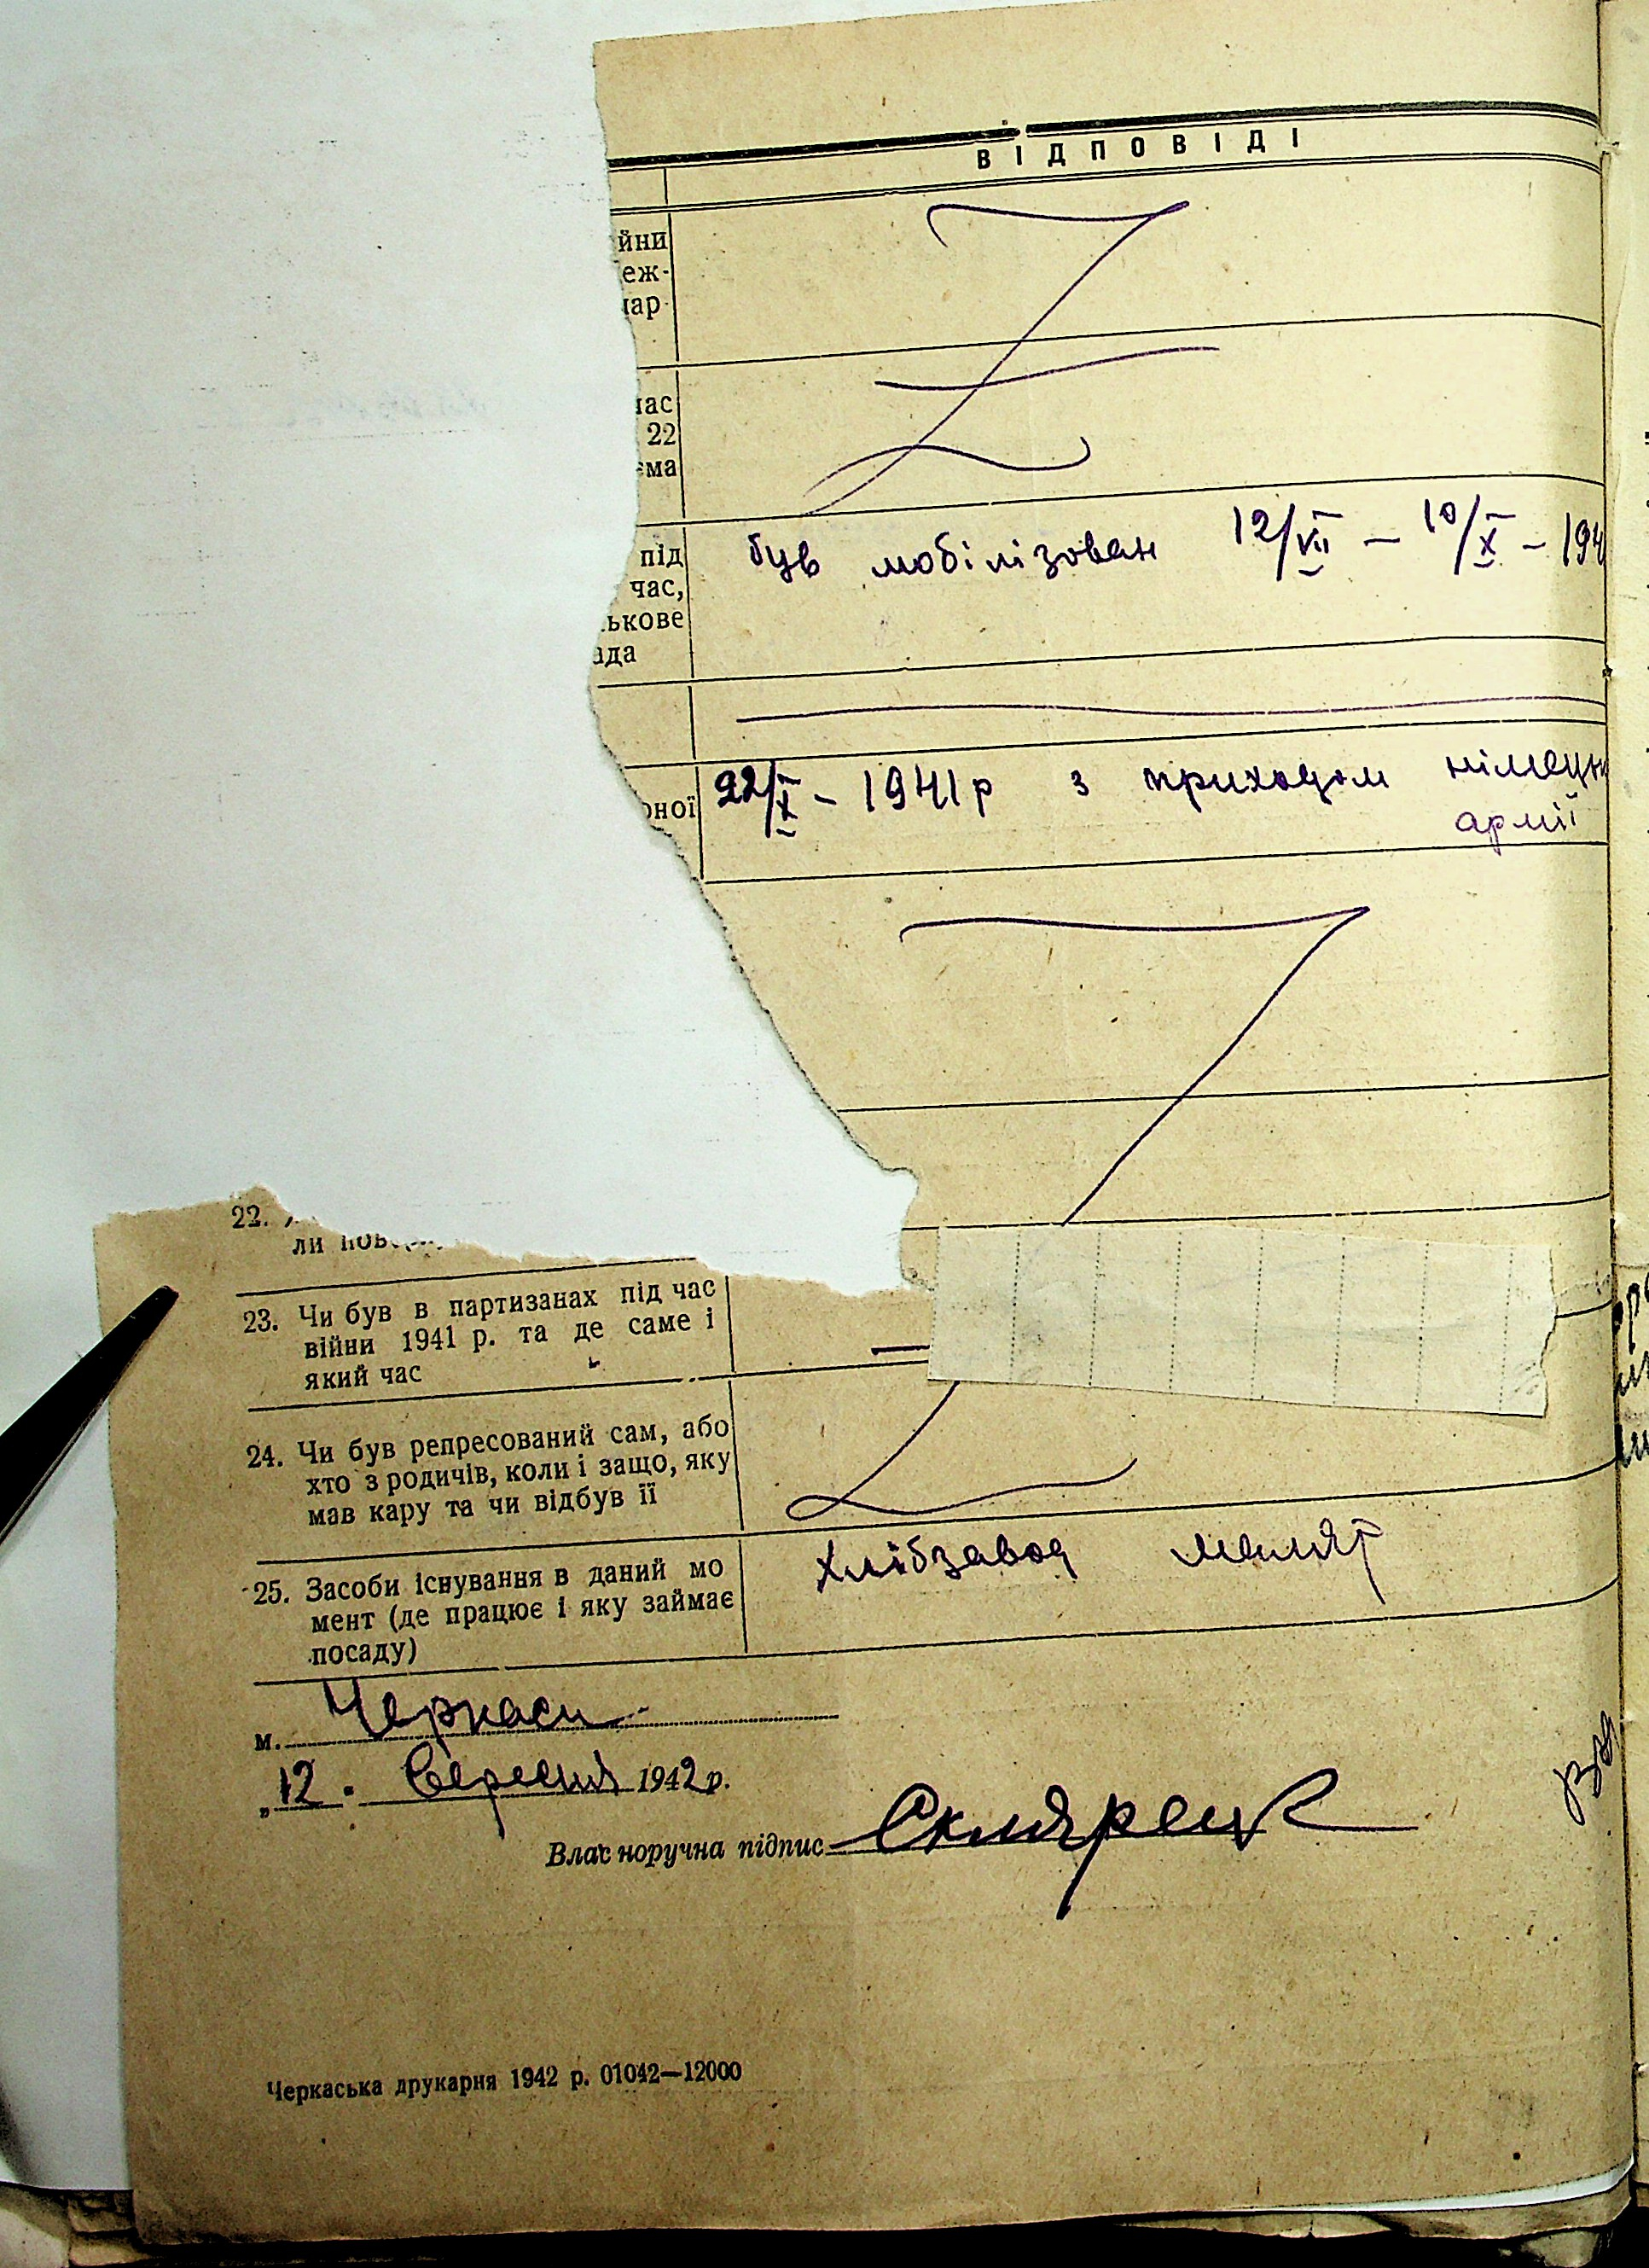 ВІДПОВІДІ
йни
еж-
нар
час
22
ема
під
час,
ькове
ада
був мобілізован 12/VII — 10/X — 194
оної
22/X - 1941 р з приходом німецьк
армії
22.
ли пов
23. Чи був в партизанах під час
війни 1941 р. та де саме і
який час
24. Чи був репресований сам, або
хто з родичів, коли і защо, яку
мав кару та чи відбув її
25. Засоби існування в даний мо
мент (де працює і яку займає
посаду)
Хлібзавод маляр
м. Черкаси
„12" Вересня 1942 р.
Власноручна підпис
Черкаська друкарня 1942 р. 01042—12000